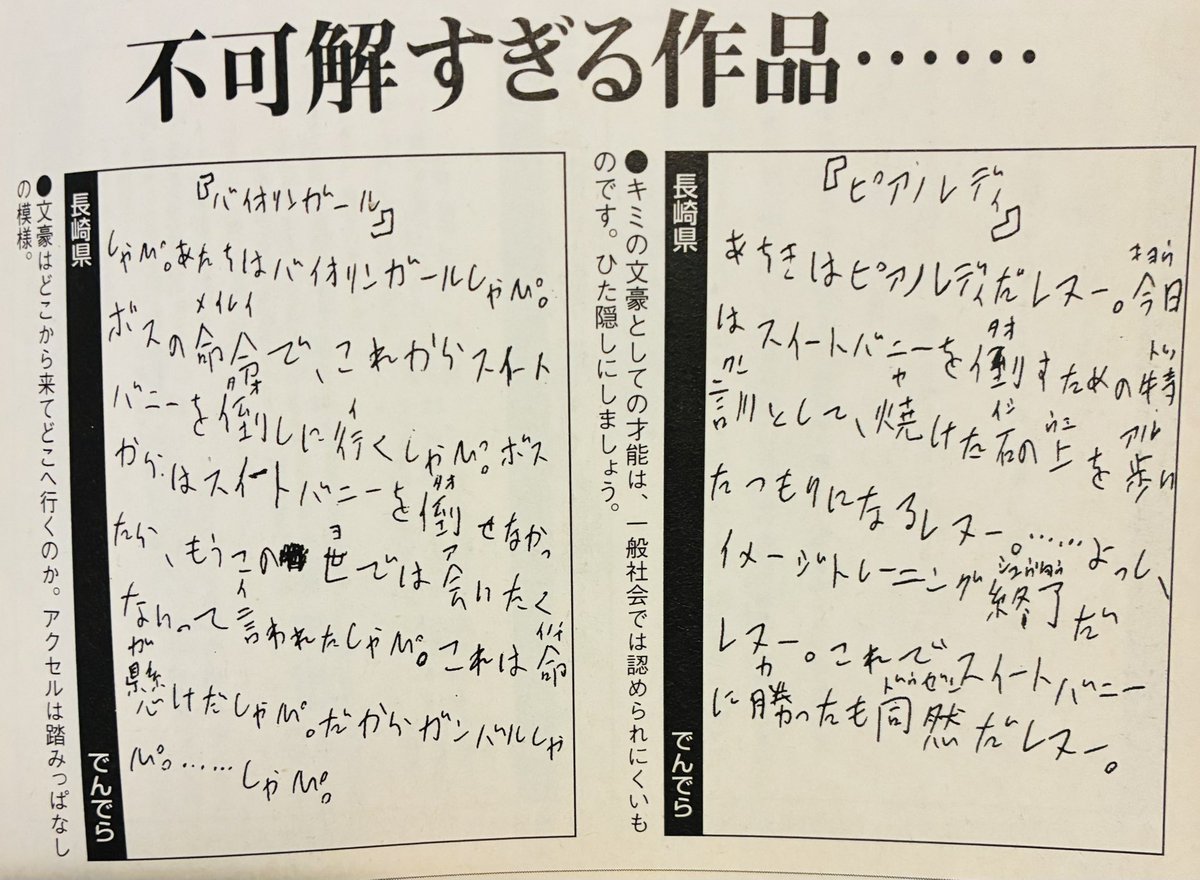 不可解すぎる作品……
『ピアノレディ』
あちきはピアノレディだレヌー。今日
キョウ
はスイートバニーを倒すための特
タオ トッ
訓として、焼けた石の上を歩い
クン ヤ イシ ウエ アル
たつもりになるレヌー。……よっし、
イメージトレーニング終了だ
シュウリョウ
レヌー。これでスイートバニー
に勝ったも同然だレヌー。
カ ドウゼン
長崎県
でんでら
●キミの文豪としての才能は、一般社会では認められにくいも
のです。ひた隠しにしましょう。
『バイオリンガール』
しゃ。あたちはバイオリンガールしゃ。
ボスの命令で、これからスイート
メイレイ
バニーを倒しに行くしゃ。ボス
タオ イ
からはスイートバニーを倒せなかっ
タオ
たら、もうこの世では会いたく
ヨ ア
ないって言われたしゃ。これは命
イ イノチ
懸けだしゃ。だからガンバルしゃ
ガ
。……しゃ。
長崎県
でんでら
●文豪はどこから来てどこへ行くのか。アクセルは踏みっぱなし
の模様。